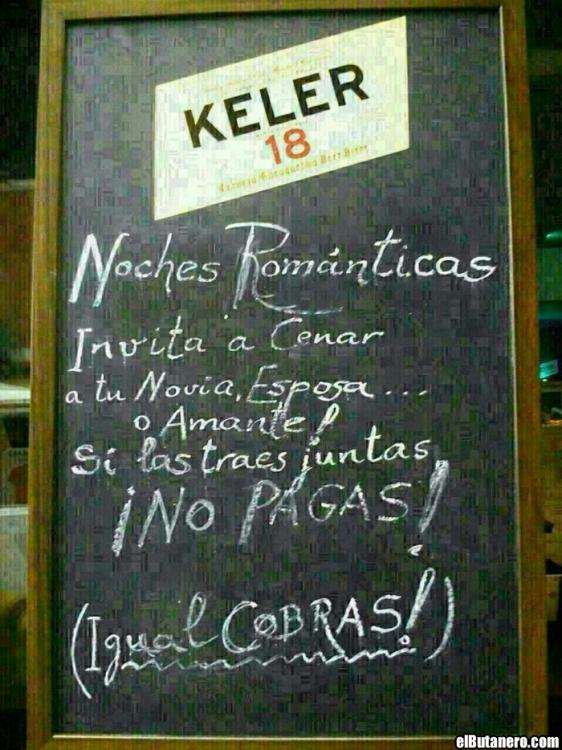 KELER
18
Noches Románticas
Invita a Cenar
a tu Novia, Esposa...
o Amante!
Si las traes juntas
¡NO PAGAS!
(Igual COBRAS!)
elButanero.com